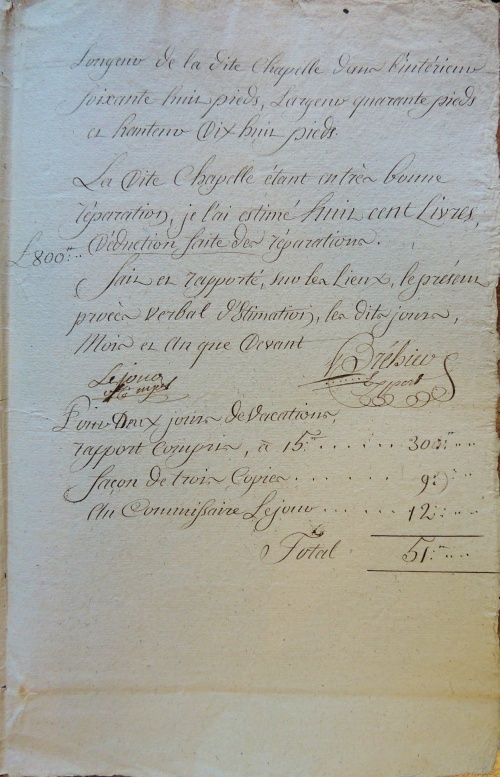 Longeur de la dite Chapelle dans l'intérieur
soixante huit pieds, Largeur quarante pieds
et hauteur Dix huit pieds.
La Dite Chapelle étant en très bonne
réparation, je l'ai estimé huit cent Livres,
£800 Déduction faite des réparations.
fait et rapporté, sur les Lieux, le présent
procès verbal d'Estimation, les dits jours,
Mois et An que Devant
Lejouo Bréhier
Expert
Pour Deux jours de Vacations,
rapport compris, à 15 ...... 30
façon de trois Copies ....... 9
Au Commissaire Lejouo ...... 12
Total 51